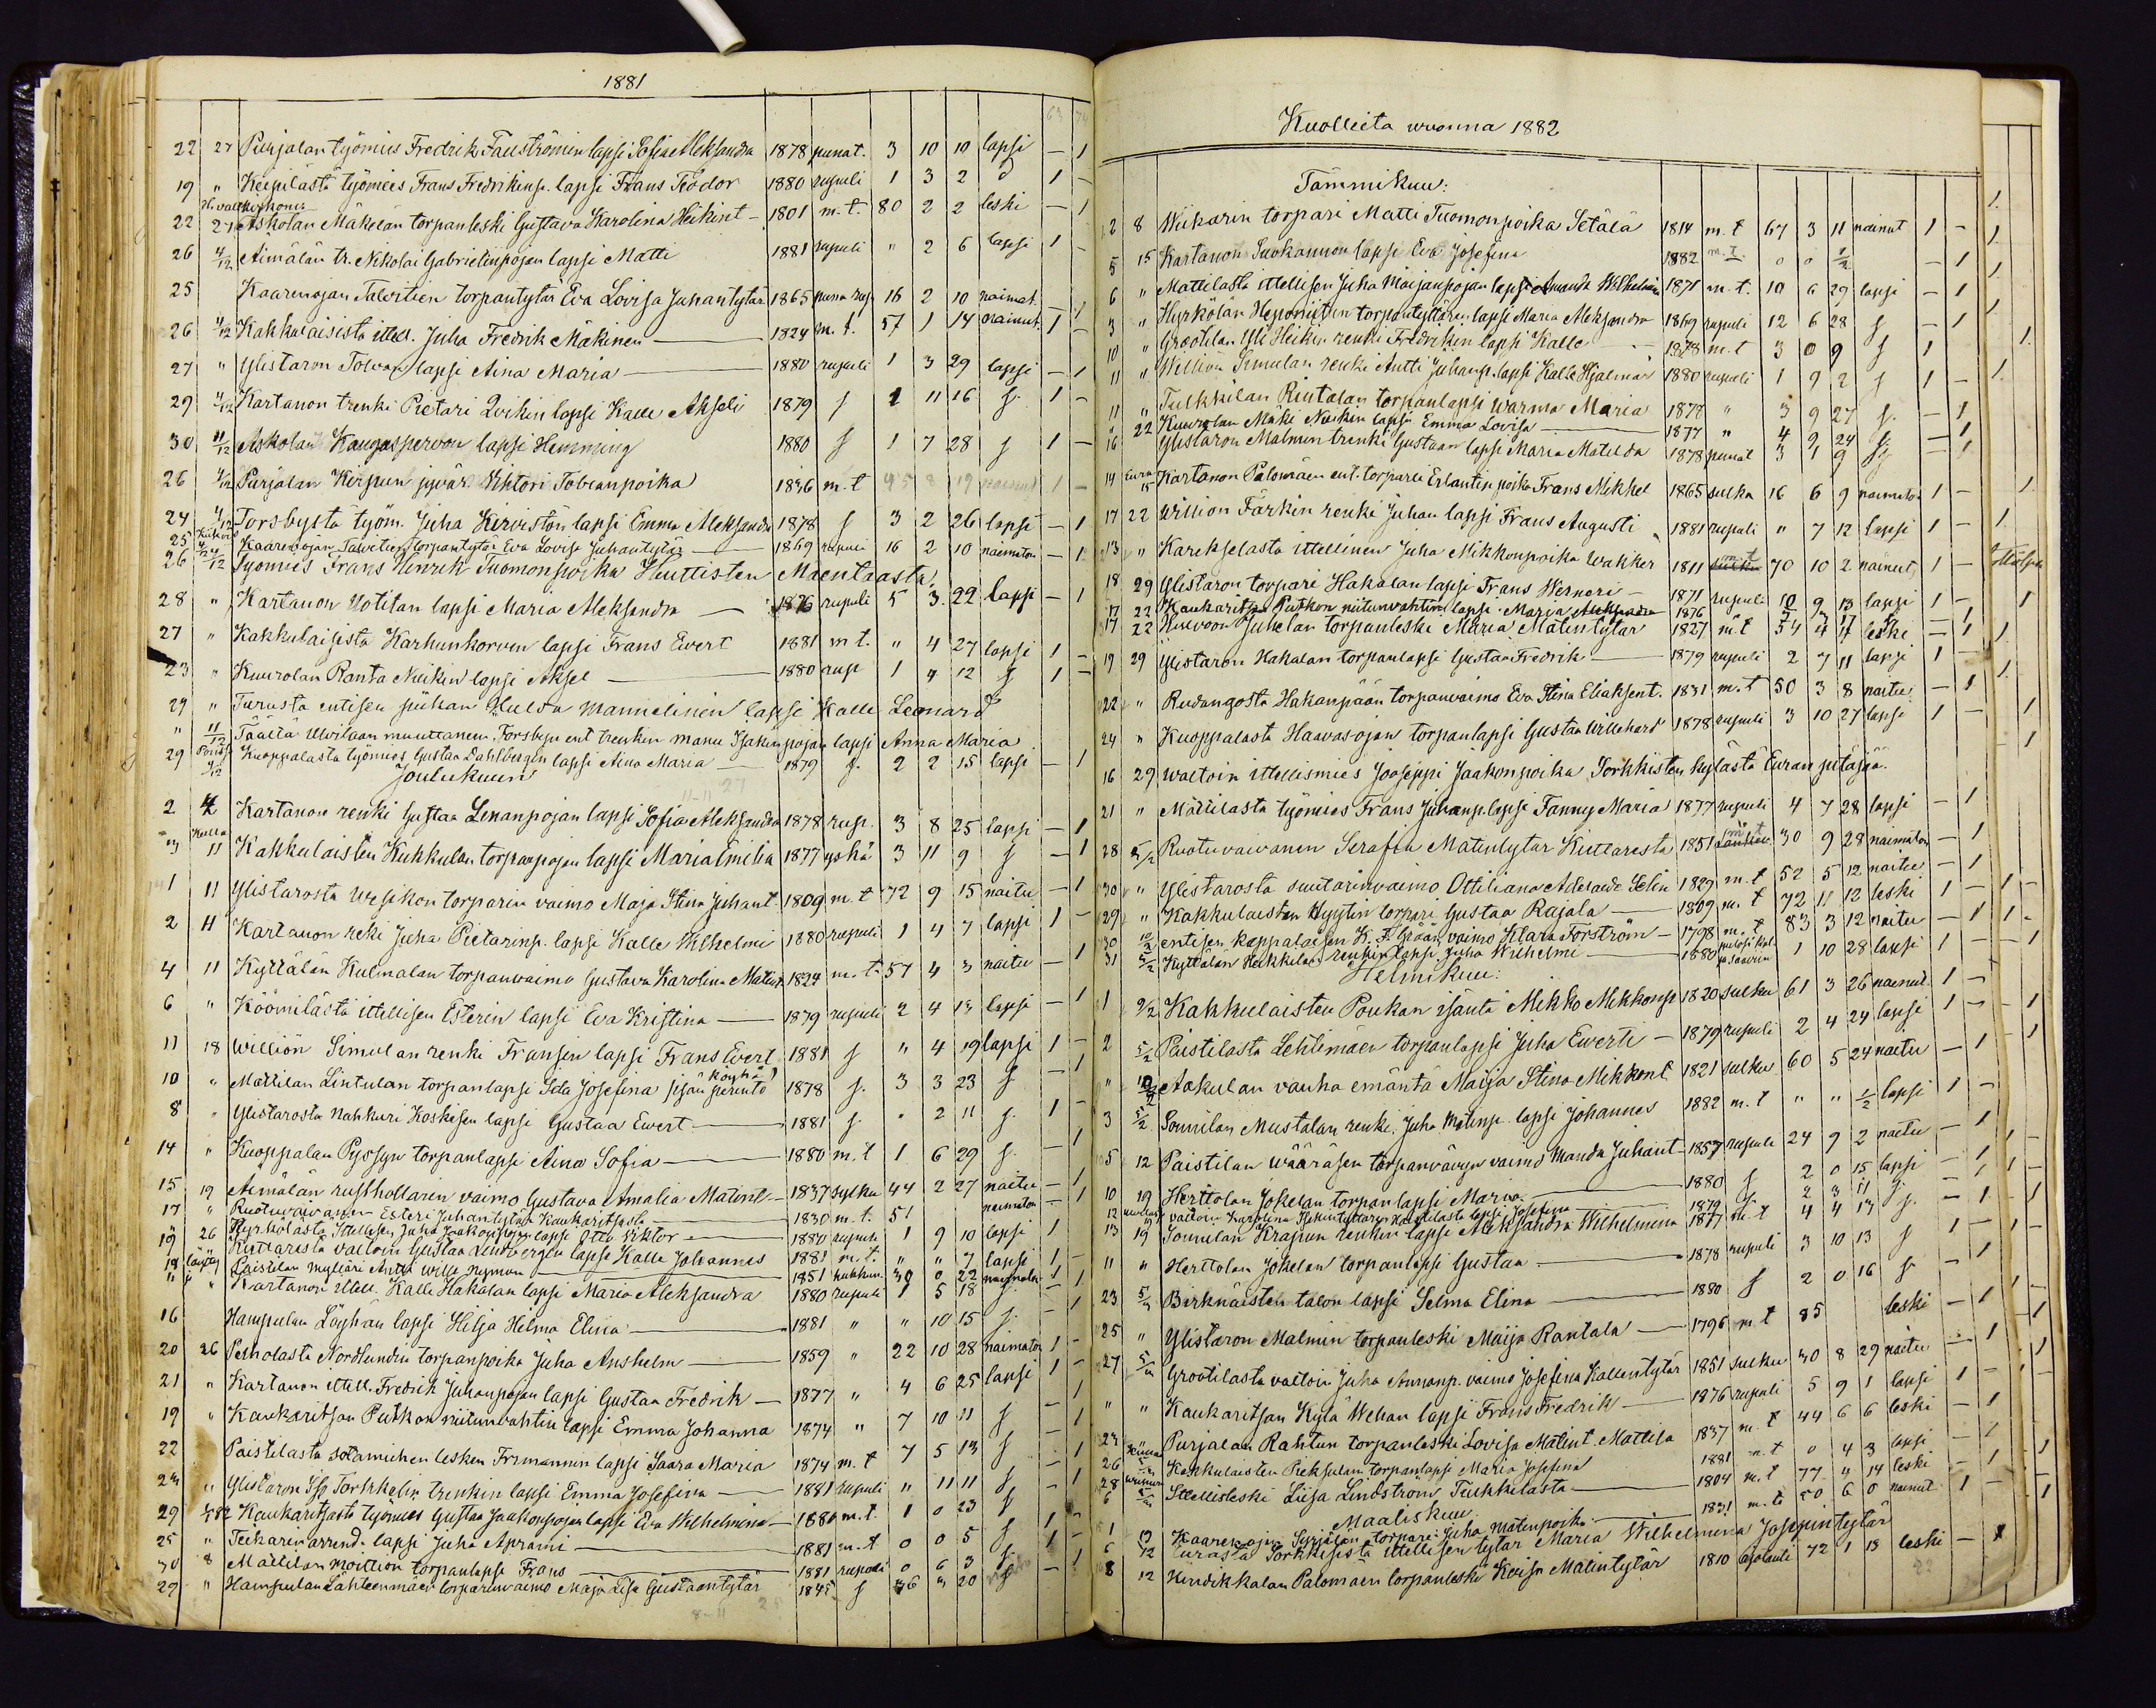 1881
22 27 Purjalan työmies Fredrik Fauströmin lapsi Sofia Aleksandra 1878 punat. 3 10 10 lapsi — 1
19 " Keipilästä työmies Frans Fredrikinp. lapsi Frans Teodor 1880 rupuli 1 3 2 1 —
22 27 Askolan Mäkelän torpanleski Gustava Karolina Heikint — 1801 m.t. 80 2 2 leski — 1
26 4/12 Aimälän tr. Nikolai Gabrielinpojan lapsi Matti 1881 rupuli " 2 6 lapsi 1 —
25 Kaarenojan Talvitien torpantytär Eva Lovisa Juhantytär 1865 puna rup 16 2 10 naimat. — 1
26 4/12 Kakkulaisista ittell. Juha Fredrik Mäkinen — 1824 m.t. 57 1 14 nainut. 1 —
27 " Ylistaron Tolvan lapsi Aina Maria — 1880 rupuli 1 3 29 lapsi — 1
29 4/12 Kartanon trenki Pietari Qvikin lapsi Kalle Akseli 1879 s 2 11 16 s. 1 —
30 11/12 Askolan Kangaspervon lapsi Hemming 1880 s 1 7 28 s 1 —
26 4/12 Purjalan Kirpun jyvär. Vihtori Tobianpoika 1836 m.t 45 8 19 nainut 1 —
24 4/12 Torsbystä työm. Juha Kerviston lapsi Emma Aleksandra 1878 s 3 2 26 lapsi — 1
25 4/12 Kaarenojan Talvitien torpantytär Eva Lovisa Juhantytär — 1869 rupuli 16 2 10 naimaton — 1
26 4/12 Työmies Frans Henrik Tuomonpoika Huittisten Mäentaasta.
28 " Kartanon Uotilan lapsi Maria Aleksandra — 1876 rupuli 5 3 22 lapsi — 1
27 " Kakkulaisista Karhunkorven lapsi Frans Evert 1881 m t. " 4 27 lapsi 1 —
23 " Kuurolan Ranta Neikin lapsi Aksel — 1880 rup 1 4 12 s 1 —
29 " Turusta entisen piikan Hulda Mannelinin lapsi Kalle Leonard
" 11/12 Täältä Ulvilaan muuttaneen Torsbyn ent trenkin Manu Isakinpojan lapsi Anna Maria
29 4/12 Kuoppalasta työmies Gustaa Dahlbergin lapsi Aina Maria — 1879 s. 2 2 15 lapsi — 1
Joulukuun
2 4 Kartanon renki Gustaa Lenanpojan lapsi Sofia Aleksandra 1878 rup. 3 8 25 lapsi — 1
3 11 Kakkulaisten Kukkulan torpanpojan lapsi Maria Emilia 1877 yskä 3 11 9 s — 1
1 11 Ylistarosta Vesikon torparin vaimo Maja Stina Juhant. 1809 m.t 72 9 15 naitu — 1
2 11 Kartanon reki Juha Pietarinp. lapsi Kalle Vilhelmi 1880 rupuli 1 4 7 lapsi 1 —
4 11 Kyttälän Kulmalan torpanvaimo Gustava Karolina Matint 1824 m.t. 57 4 3 naitu — 1
6 " Köömilästä ittellisen Esterin lapsi Eva Kristina — 1879 rupuli 2 4 13 lapsi — 1
11 18 Williön Simulan renki Fransin lapsi Frans Evert 1881 s " 4 19 lapsi 1 —
10 " Mattilan Lintulan torpanlapsi Ida Josefina (isän perintö köyhä) 1878 s. 3 3 23 s — 1
8 " Ylistarosta Nahkuri Koskisen lapsi Gustaa Evert — 1881 s. " 2 11 s. 1 —
14 " Kuoppalan Pyssyn torpanlapsi Aina Sofia — 1880 m.t 1 6 29 s. — 1
15 19 Aimälän rusthollarin vaimo Gustava Amalia Matint — 1837 sylku 44 2 27 naitu — 1
17 " Ruotuvaivanen Esteri Juhantytär Kaukaritsasta 1830 m.t. 51 naimaton — 1
19 26 Hyrkölästä Ittellisen Juha Jaakonpojan lapsi Otto Viktor — 1880 rupuli 1 9 10 lapsi 1
Kuttaresta valtoin Gustaa Lindbergin lapsi Kalle Johannes 1881 m.t. " " 7 lapsi 1
18 Paistilan mylläri Antti Wille Nyman — 1851 30 0 22 naimaton 1
" " Kartanon ittell. Kalle Hakalan lapsi Maria Aleksandra 1880 rupuli 1 5 18 s. — 1
16 Hampulan Löyhän lapsi Hilja Helma Elina — 1881 " " 10 15 s. — 1
20 26 Penholasta Nordlundin torpanpoika Juha Anshelm — 1859 " 22 10 28 naimaton 1 —
21 " Kartanon ittell. Fredrik Juhanpojan lapsi Gustaa Fredrik — 1877 " 4 6 25 lapsi 1 —
19 " Kaukaritsan Putkon niitunvahtin lapsi Emma Johanna 1874 " 7 10 11 s — 1
22 Paistilasta sotamiehen lesken Frimannin lapsi Saara Maria 1874 m.t 7 5 13 s — 1
23 " Ylistaron Isо Torkkelin trenkin lapsi Emma Josefina — 1881 rupuli " 11 11 s — 1
29 1/1 82 Kaukaritsasta työmies Gustaa Jaakonpojan lapsi Eva Wilhelmina — 1880 m.t. 1 0 23 s — 1
25 " Teikarin arrend. lapsi Juha Aprami — 1881 m.t 0 0 5 s 1 —
30 8 Mattilan Moittion torpanlapsi Frans — 1881 rupuli 0 6 3 s. 1 —
29 " Hampulan Lähteenmäen torparinvaimo Maja Lisa Gustaantytär 1845 s 36 " 20 s — 1
Kuolleita vuonna 1882
Tammikuu:
2 8 Wiikarin torpari Matti Tuomonpoika Setälä 1814 m.t 67 3 11 nainut 1 —
5 15 Kartanon Suokannon lapsi Eva Josefina 1882 m.t. 0 0 1/2 — 1
6 " Mattilasta ittellisen Juha Maijanpojan lapsi Amanda Wilhelmina 1871 m.t. 10 6 29 lapsi — 1
3 " Hyrkölän Heponiitun torpantyttären lapsi Maria Aleksandra 1869 rupuli 12 6 28 s — 1
10 " Grootilan Yli Heikin renki Fredrikin lapsi Kalle — 1878 m.t 3 0 9 s 1
11 " Williön Simulan renki Antti Juhanp. lapsi Kalle Hjalmar 1880 rupuli 1 9 2 s 1 —
11 " Tulkkilan Rintalan torpanlapsi Warma Maria 1878 " 3 9 27 s. — 1
" 22 Kuurolan Mäki Neikin lapsi Emma Lovisa — 1877 " 4 9 24 s. — 1
16 Ylistaron Malmin trenki Gustaan lapsi Maria Matilda 1878 punat 3 1 9 s — 1
14 Eura 15 Kartanon Palomäen ent. torpari Erlantin poika Frans Mikkel 1865 sulku 16 6 9 naimaton 1 —
17 22 Williön Färkin renki Juhan lapsi Frans Augusti 1881 rupuli " 7 12 lapsi 1 —
13 " Karekselasta ittellinen Juha Mikkonpoika Wakker 1811 m.t 70 10 2 nainut 1 —
18 29 Ylistaron torpari Hakalan lapsi Frans Werneri — 1871 rupuli 10 9 13 lapsi 1 —
17 22 Kaukaritsan Putkon niitunvahtin lapsi Maria Aleksandra 1876
17 22 Juhelan torpanleski Maria Matintytär 1827 m.t 54 4 4 leski — 1
19 29 Ylistaron Hakalan torpanlapsi Gustaa Fredrik — 1879 rupuli 2 7 11 lapsi 1 —
22 " Rudangosta Hakanpään torpanvaimo Eva Stina Eliaksent. 1831 m.t 50 3 8 naitu — 1
24 " Kuoppalasta Haavasojan torpanlapsi Gustaa Willehard 1878 rupuli 3 10 27 lapsi 1 —
16 29 Valtoin ittellismies Jooseppi Jaakonpoika Sorkkisten kylästä Euran pitäjää.
21 " Mattilasta työmies Frans Juhanp. lapsi Fanny Maria 1877 rupuli 4 7 28 lapsi — 1
28 5/2 Ruotuvaivanen Serafia Matintytär Kuttaresta 1851 m.t 30 9 28 naimaton — 1
30 " Ylistarosta suutarinvaimo Ottiliana Adelaide Selin 1829 m.t 52 5 12 naitu — 1
29 " Kakkulaisten Hyytin torpari Gustaa Rajala — 1809 m.t 72 11 12 leski 1 —
30 12/2 entisen kappalaisen K. F. Gröön vaimo Klara Forström — 1798 m.t 83 3 12 naitu — 1
31 5/2 Kyttälän Heikkilän renkin lapsi Juha Wilhelmi — 1880 1 10 28 lapsi 1 —
Helmikuu:
1 9/2 Kakkulaisten Poukan isäntä Mikko Mikkonp 1820 sulku 61 3 26 nainut 1 —
2 5/2 Paistilasta Lehtimäen torpanlapsi Juha Ewerti — 1879 rupuli 2 4 24 lapsi 1 —
" 12/2 Askulan vanha emäntä Maija Stina Mikkont 1821 sulku 60 5 24 naitu — 1
3 5/2 Sonnilan Mustalan renki Juha Matinp. lapsi Johannes 1882 m.t " " 1/2 lapsi 1 —
5 12 Paistilan Wääräsen torpanvävyn vaimo Manda Juhant 1857 rupuli 24 9 2 naitu — 1
10 19 Herttolan Jokelan torpanlapsi Maria — 1880 s 2 0 15 lapsi — 1
12 valtoin Karolina Heikintyttären Mattilasta lapsi Josefina 1879 s 2 3 11 s. — 1
13 19 Sonnilan Krapun renkin lapsi Aleksandra Wilhelmina 1877 m.t 4 4 13 s. — 1
11 " Herttolan Jokelan torpanlapsi Gustaa — 1878 rupuli 3 10 13 s 1 —
23 5/3 Birknäisten talon lapsi Selma Elina — 1880 s 2 0 16 s — 1
25 " Ylistaron Malmin torpanleski Maija Rantala — 1796 m.t 85 leski — 1
27 5/3 Grootilasta valtoin Juha Annanp. vaimo Josefina Kallentytär 1851 sulku 30 8 29 naitu — 1
" " Kaukaritsan Kylä Wehan lapsi Frans Fredrik — 1876 rupuli 5 9 1 lapsi 1 —
23 Purjalan Rahtun torpanleski Lovisa Matint. Mattila 1837 m.t 44 6 6 leski — 1
26 Kakkulaisten Pieksulan torpanlapsi Maria Josefina 1881 m.t 0 4 3 lapsi — 1
28 Ittellisleski Liisa Lindström Tulkkilasta — 1804 m.t 77 4 14 leski — 1
Maaliskuu
1 12 Kaarenojan Seppälän torpari Juha Matinpoika — 1831 m.t. 50 6 0 nainut 1 —
6 12 Eurasta Sorkkisista ittellisen tytär Maria Wilhelmina Josepintytär
8 12 Kindikkalan Palomäen torpanleski Kaisa Matintytär 1810 72 1 13 leski — 1